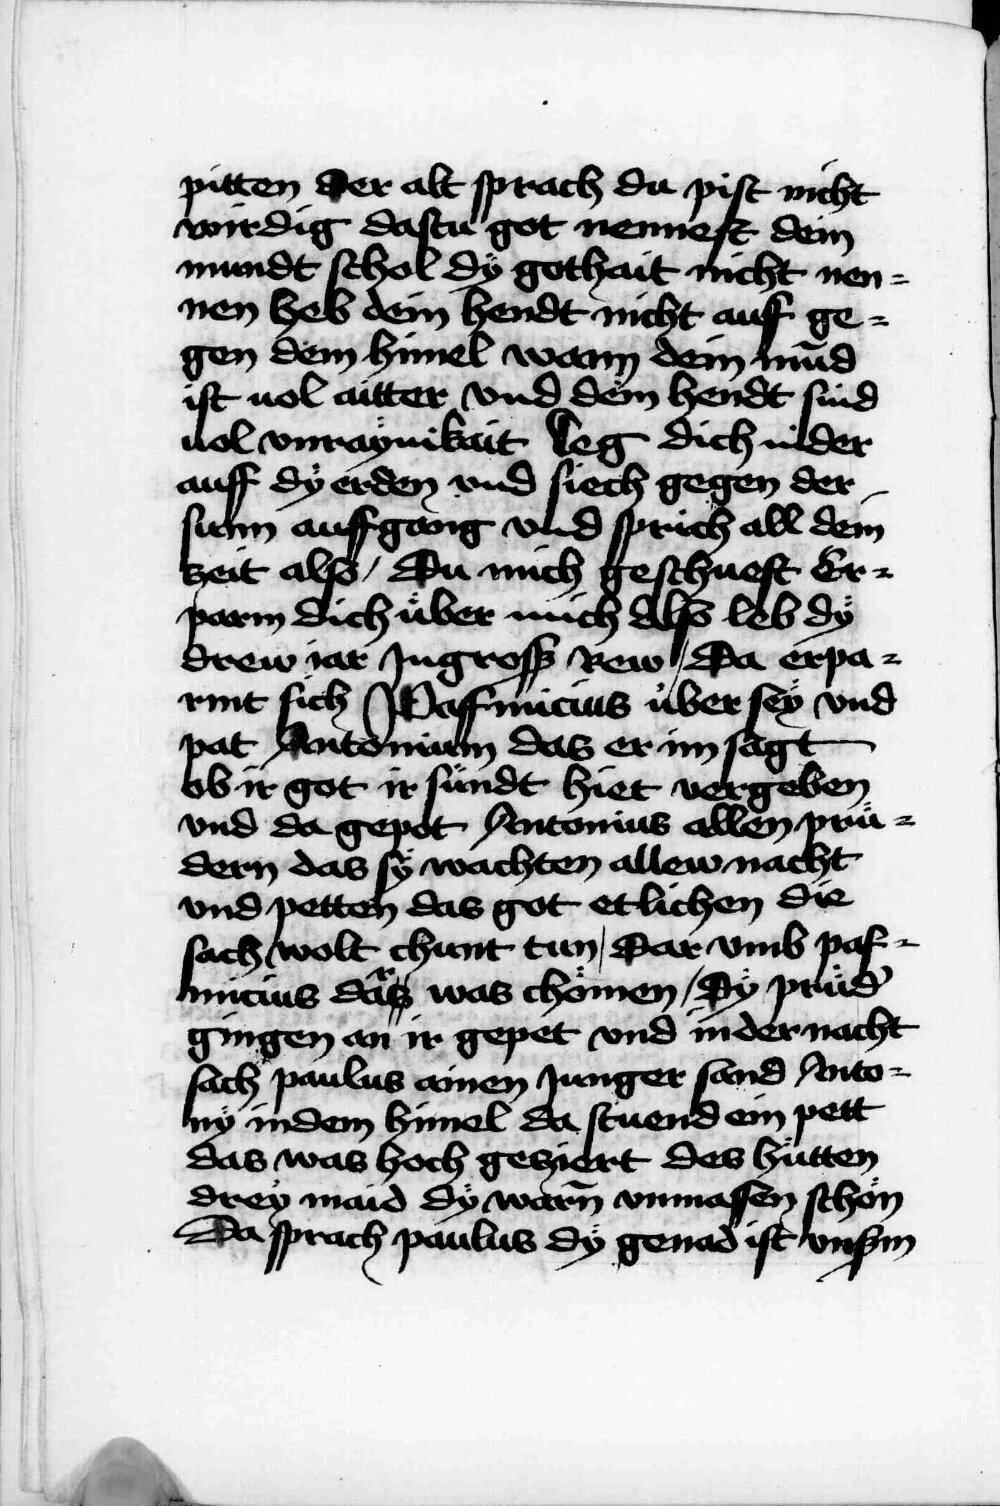 pitten Der alt sprach du pist nicht
wirdig dastu got nennest dein
mundt schol dÿ gothait nicht nen=
nen heb dein hendt nicht auff ge=
gen dem himel wann dein mūd
ist uol aitter vnd dein hendt sind
uol vnraÿnikait Leg dich nider
auff dÿ erden vnd siech gegen der
sunn auffganng vnd sprich all dein
zeit also / Du mich geschueft Er=
parm dich über mich Also leb dÿ
drew iar Jngross Rew / Da erpa=
rmt sich Paffnucius über seÿ vnd
pat Antonium das er im sagt
ob ir got ir sündt hiet vergeben
vnd da gepot Antonius allen prü=
dern das sÿ wachten allew nacht
vnd petten das got etlichen die
sach wolt chunt tun / Dar vmb paf=
nucius dar was chömen / Dÿ prüd'
gingen an ir gepet vnd inder nacht
sach paulus ainen Junger sand Anto=
nÿ indem himel da stuend ein pett
das was hoch geziert des hütten
dreÿ maid dÿ warn̄ vnmassen schön
Da sprach paulus dÿ genad ist vnsm